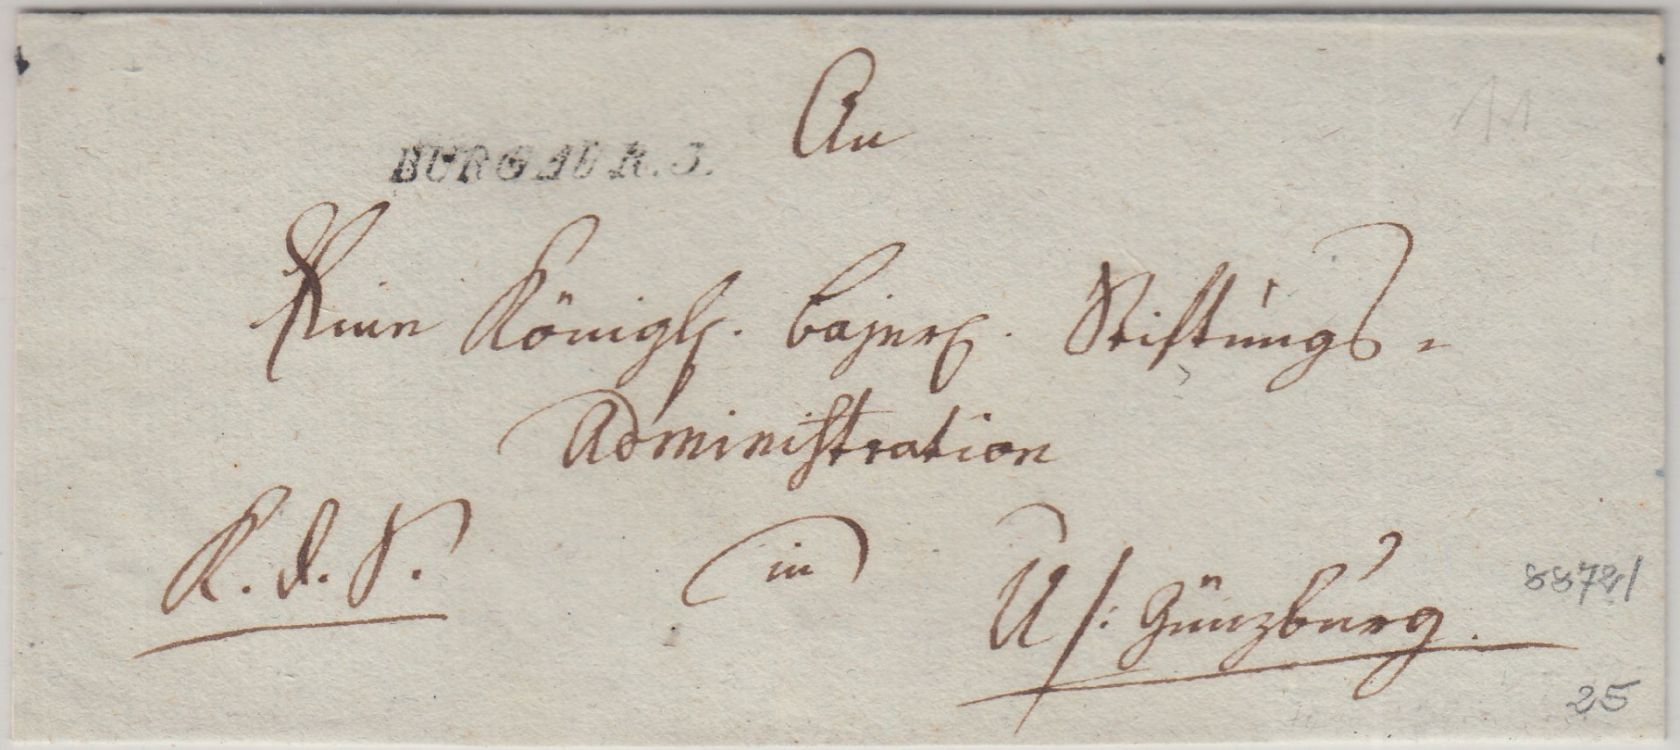 An
BURGAU R. 3.
Eine Königl. bajer. Stiftungs-
Administration
K. d. S.
in
U/: Günzburg.
8872/
25